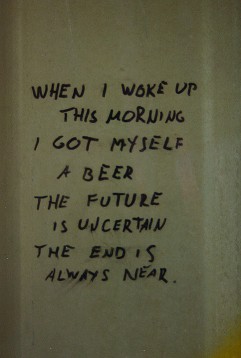 WHEN I WOKE UP
THIS MORNING
I GOT MYSELF
A BEER
THE FUTURE
IS UNCERTAIN
THE END IS
ALWAYS NEAR.